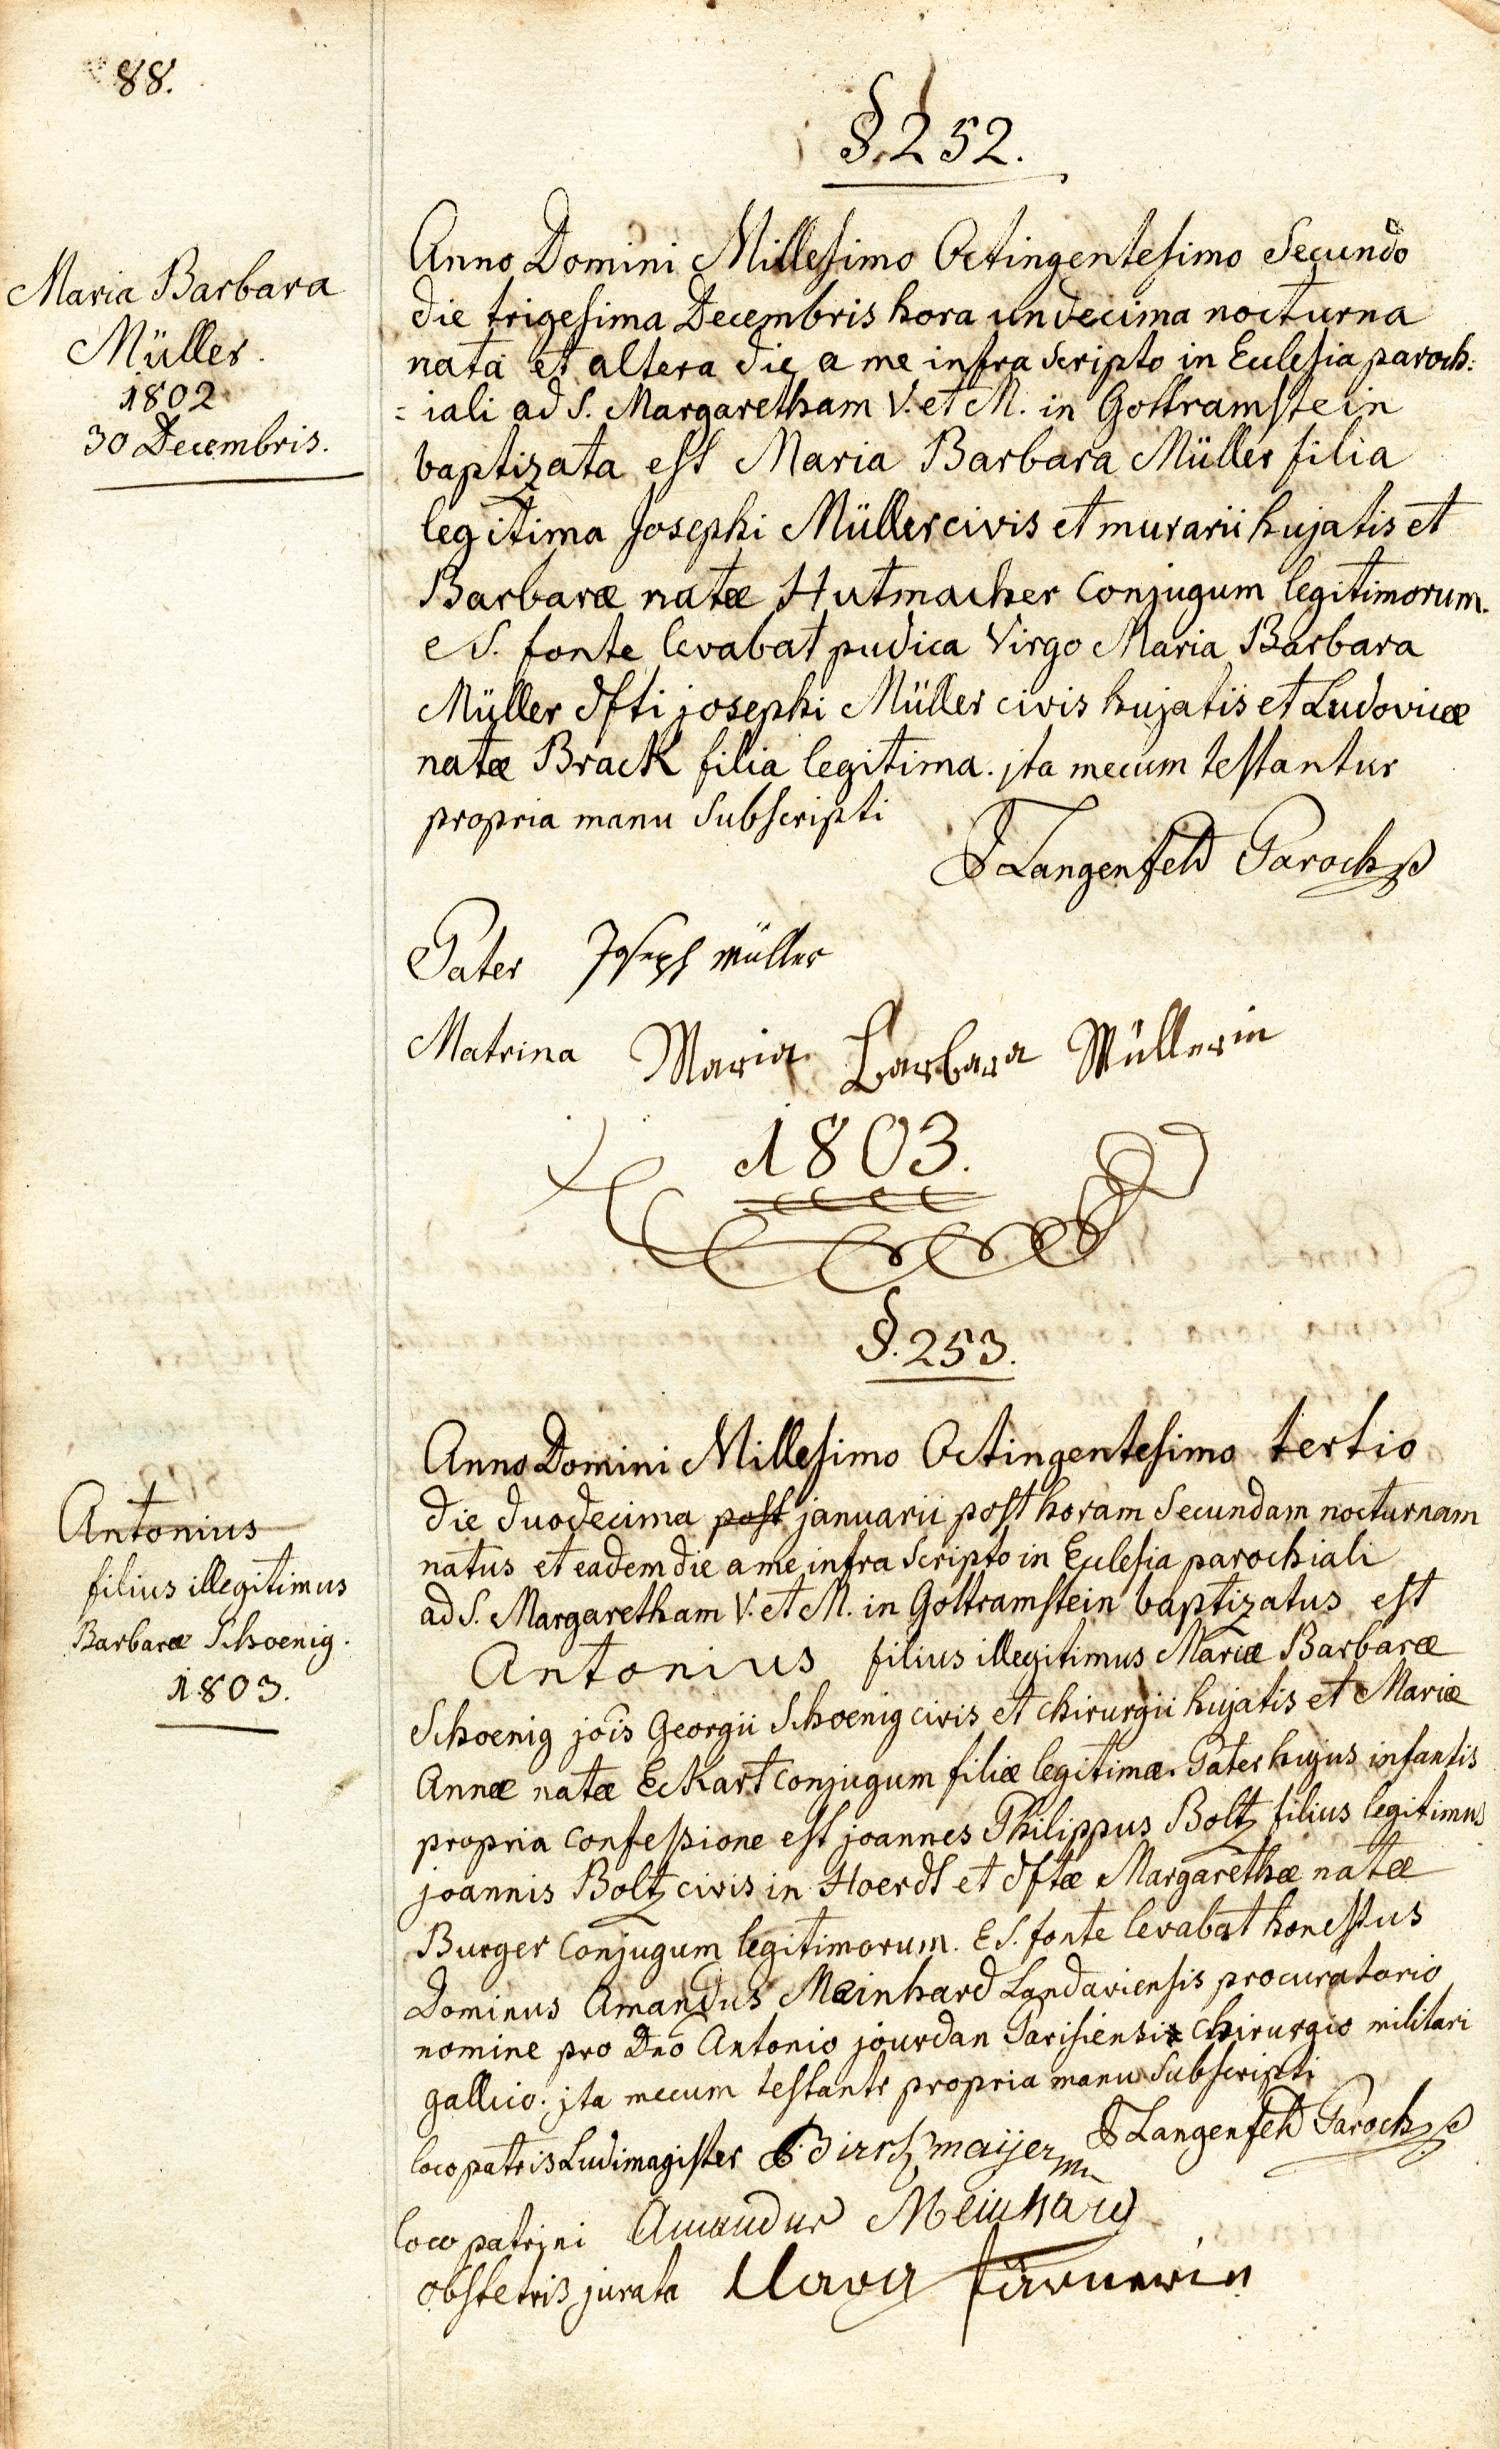 88.
§. 252.
Maria Barbara
Müller.
1802
30 Decembris.
Anno Domini Millesimo Octingentesimo Secundo
die trigesima Decembris hora undecima nocturna
nata et altera die a me infra scripto in Eclesia paroch:
=iali ad S. Margaretham V. et M. in Gottramstein
baptizata est Maria Barbara Müller filia
legitima Josephi Müller civis et murarii hujatis et
Barbaræ natæ Hutmacher Conjugum legitimorum.
e S. fonte levabat pudica Virgo Maria Barbara
Müller dfti josephi Müller civis hujatis et Ludovicæ
natæ Brack filia legitima. jta mecum testantur
propria manu Subscripti
Langenfeld Paroch
Pater Joseph Müller
Matrina Maria Barbara Müllerin
1803.
§. 253.
Antonius
filius illegitimus
Barbaræ Schoenig.
1803.
Anno Domini Millesimo Octingentesimo tertio
die duodecima post januarii post horam Secundam nocturnam
natus et eadem die a me infra scripto in Eclesia parochiali
ad S. Margaretham V. et M. in Gottramstein baptizatus est
Antonius filius illegitimus Mariæ Barbaræ
Schoenig jois Georgii Schoenig civis et Chirurgii hujatis et Mariæ
Annæ natæ Eckart Conjugum filiæ legitimæ. Pater hujus infantis
propria Confessione est joannes Philippus Boltz filius legitimus
joannis Boltz civis in Hoerdt et dftæ Margarethæ natæ
Burger Conjugum legitimorum. E S. fonte levabat honestus
Dominus Amandus Meinhard Landaviensis procuratorio
nomine pro Dno Antonio jourdan Parisiensi Chirurgo militari
gallico. jta mecum testantr propria manu Subscripti
Langenfeld Paroch
loco patris Ludimagister Birschmaijer
loco patrini Amandus Meinhard
obstetrix jurata Clara